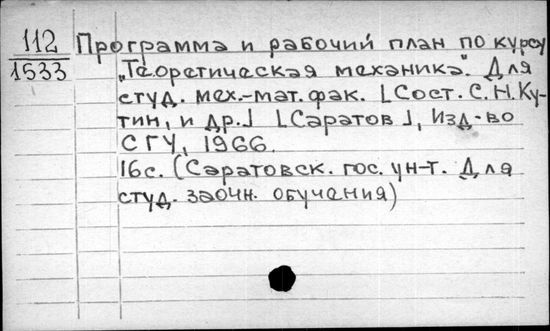 112 Программа и рабочий план по курсу
1533 „Теоретическая механика“. Для
студ. мех.-мат. фак. [Сост. С. Н. Ку-
тин, и др.] [Саратов], Изд-во
СГУ, 1966.
16с. (Саратовск. гос. ун-т. Для
студ. заочн. обучения)